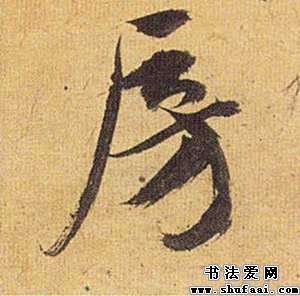 房
书法爱网
www.shufaai.com